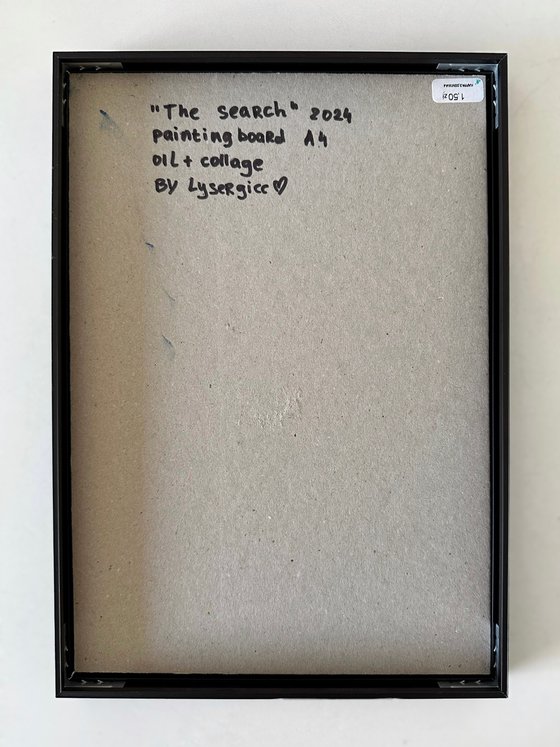 "The search" 2024
painting board A4
OIL + collage
BY Lysergicc♡
1,50zł